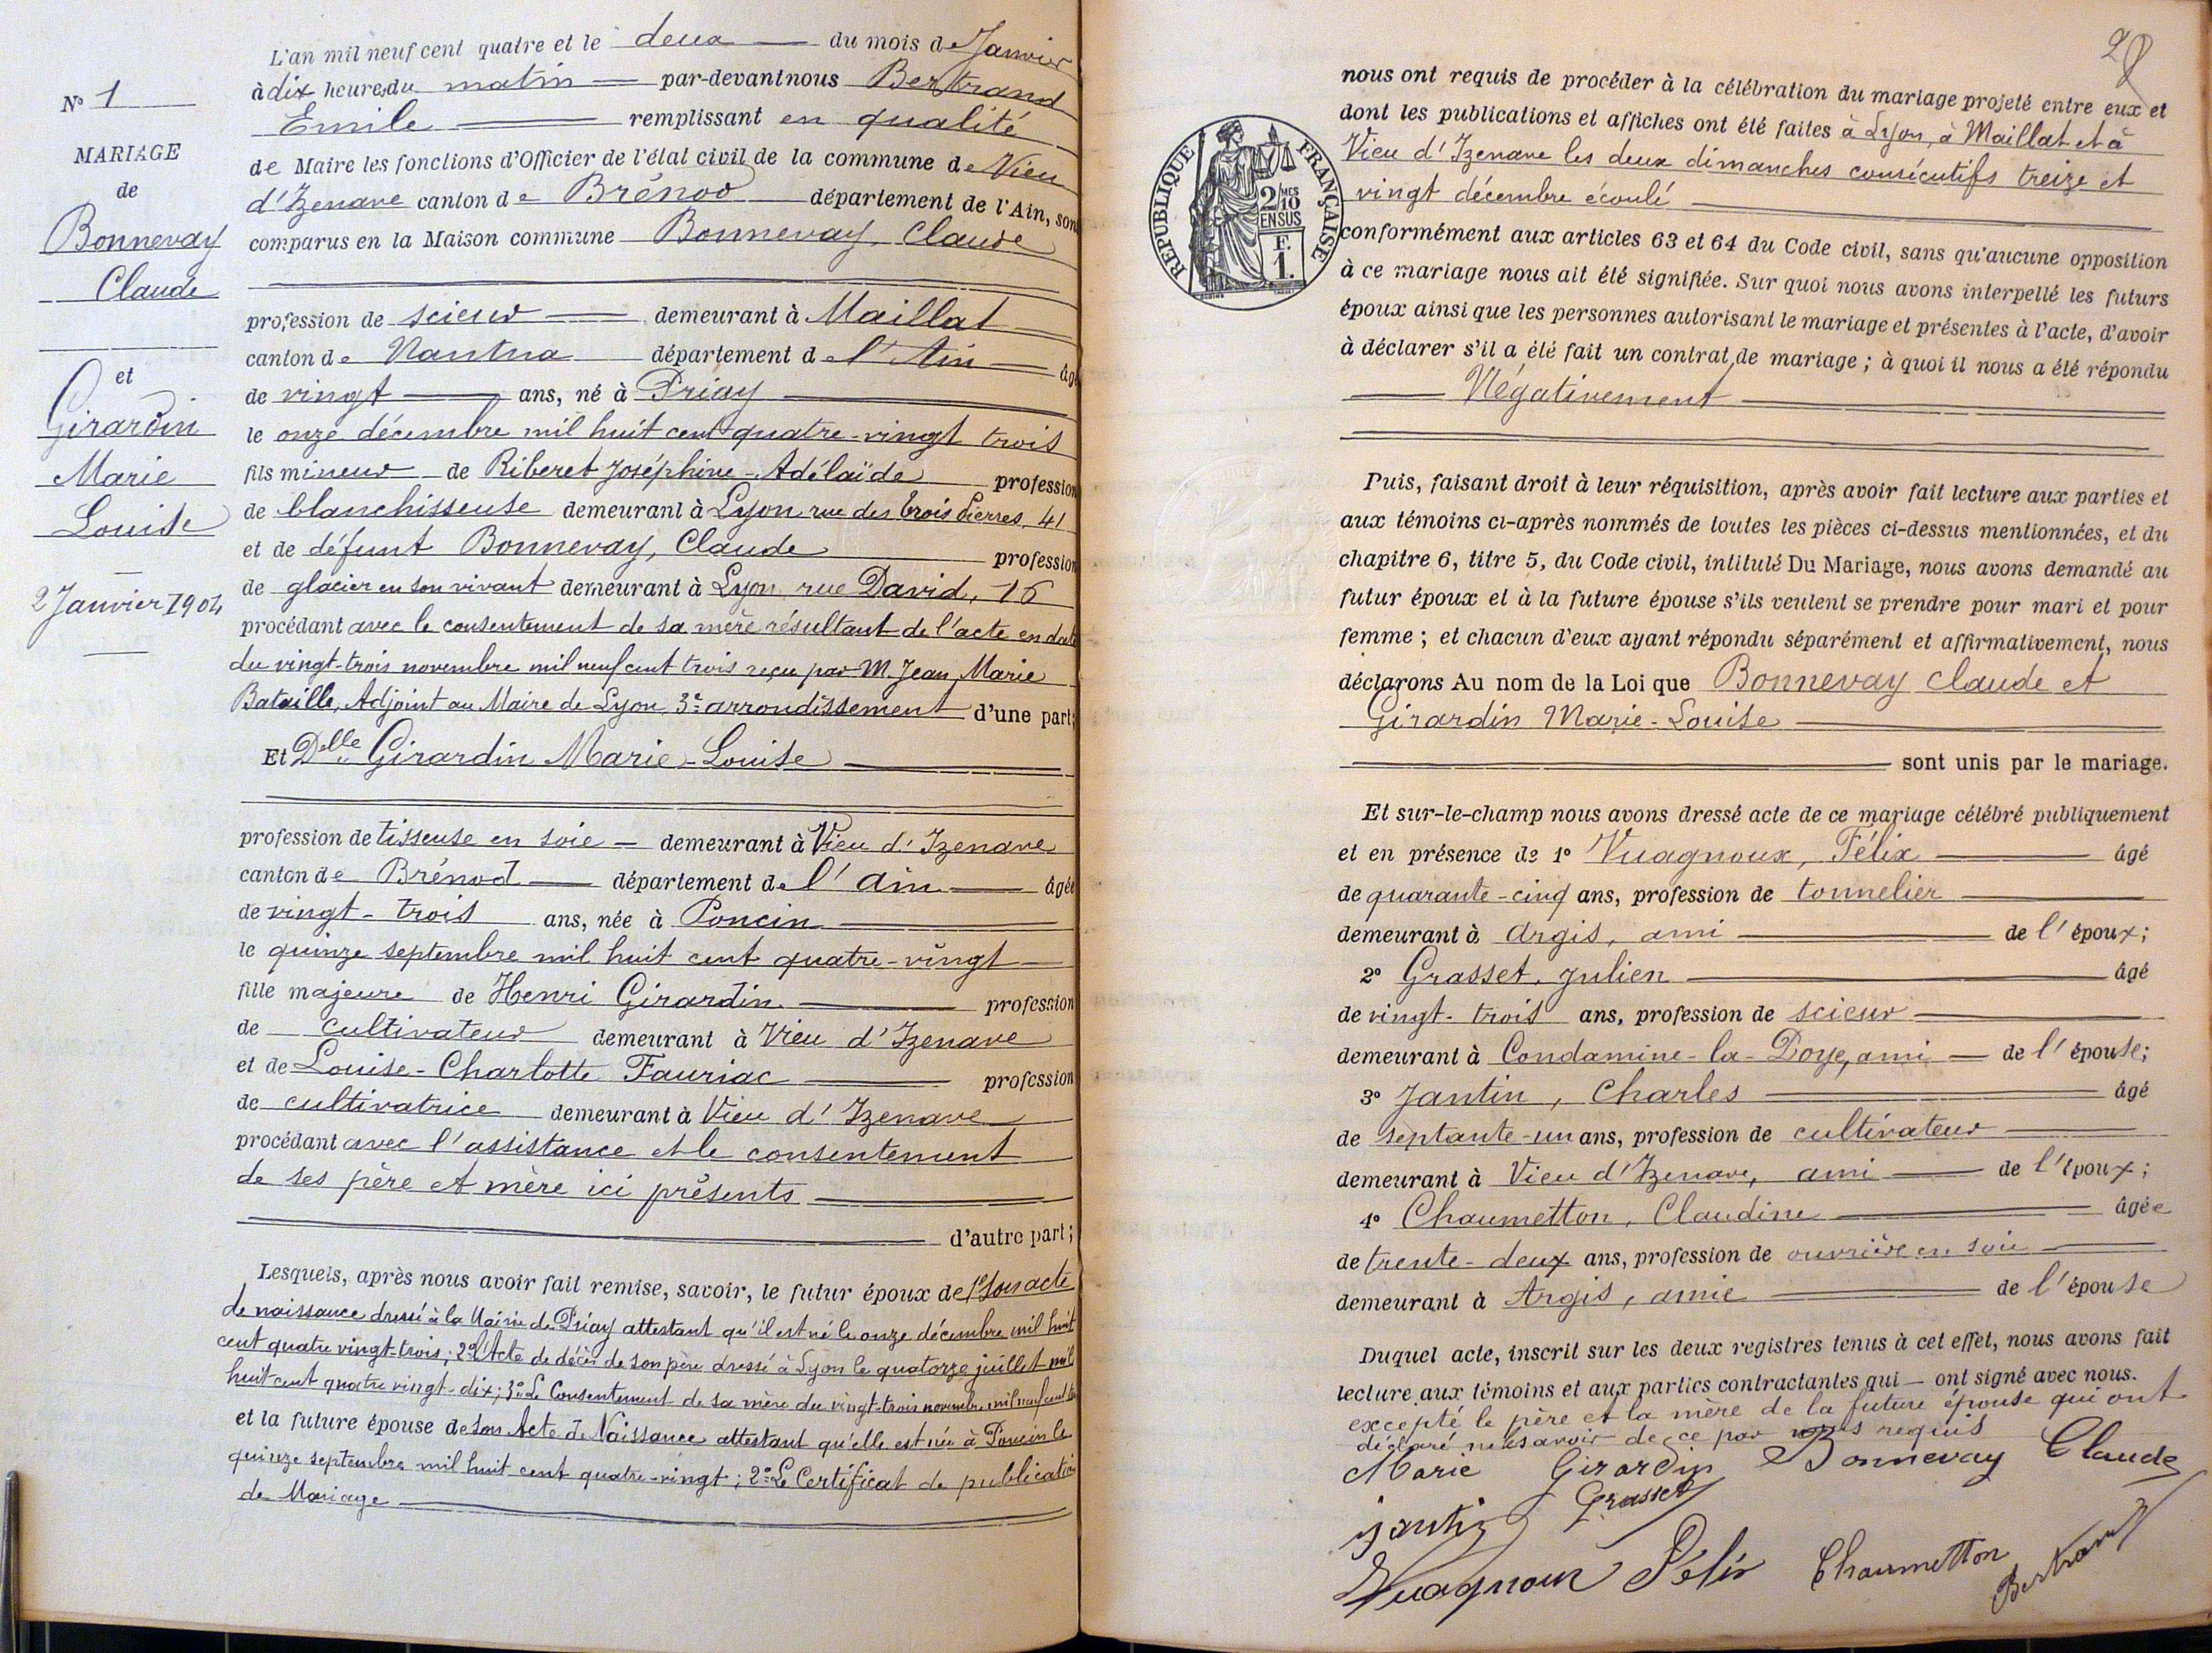 N° 1
MARIAGE
de
Bonnevay
Claude
et
Girardin
Marie
Louise
2 Janvier 1904
L'an mil neuf cent quatre et le deux du mois de Janvier
à dix heures du matin par-devant nous Bertrand
Emile remplissant en qualité
de Maire les fonctions d'Officier de l'état civil de la commune de Vieu
d'Izenave canton de Brénod département de l'Ain, son
comparus en la Maison commune Bonnevay, Claude
profession de scieur demeurant à Maillat
canton de Nantua département de l'Ain âgé
de vingt ans, né à Priay
le onze décembre mil huit cent quatre-vingt trois
fils mineur de Riberet Joséphine-Adélaïde profession
de blanchisseuse demeurant à Lyon rue des trois Pierres, 41
et de défunt Bonnevay, Claude profession
de glacier en son vivant demeurant à Lyon, rue David, 16
procédant avec le consentement de sa mère résultant de l'acte en date
du vingt-trois novembre mil neuf cent trois reçu par M. Jean Marie
Bataille, Adjoint au Maire de Lyon, 3e arrondissement d'une part;
Et Delle Girardin Marie-Louise
profession de tisseuse en soie demeurant à Vieu d'Izenave
canton de Brénod département de l'Ain âgée
de vingt-trois ans, née à Poncin
le quinze septembre mil huit cent quatre-vingt
fille majeure de Henri Girardin profession
de cultivateur demeurant à Vieu d'Izenave
et de Louise-Charlotte Fauriac profession
de cultivatrice demeurant à Vieu d'Izenave
procédant avec l'assistance et le consentement
de ses père et mère ici présents
d'autre part;
Lesquels, après nous avoir fait remise, savoir, le futur époux de 1° Son acte
de naissance dressé à la Mairie de Priay attestant qu'il est né le onze décembre mil huit
cent quatre vingt-trois; 2° L'Acte de décès de son père dressé à Lyon le quatorze juillet mil
huit cent quatre vingt-dix; 3° Le Consentement de sa mère du vingt-trois novembre mil neuf cent
et la future épouse de Son Acte de Naissance attestant qu'elle est née à Poncin le
quinze septembre mil huit cent quatre-vingt; 2° Le Certificat de publication
de Mariage
28
REPUBLIQUE FRANÇAISE
2/10 MES
EN SUS
F.
1.
nous ont requis de procéder à la célébration du mariage projeté entre eux et
dont les publications et affiches ont été faites à Lyon, à Maillat et à
Vieu d'Izenave les deux dimanches consécutifs treize et
vingt décembre écoulé
conformément aux articles 63 et 64 du Code civil, sans qu'aucune opposition
à ce mariage nous ait été signifiée. Sur quoi nous avons interpellé les futurs
époux ainsi que les personnes autorisant le mariage et présentes à l'acte, d'avoir
à déclarer s'il a été fait un contrat de mariage; à quoi il nous a été répondu
Négativement
Puis, faisant droit à leur réquisition, après avoir fait lecture aux parties et
aux témoins ci-après nommés de toutes les pièces ci-dessus mentionnées, et du
chapitre 6, titre 5, du Code civil, intitulé Du Mariage, nous avons demandé au
futur époux et à la future épouse s'ils veulent se prendre pour mari et pour
femme; et chacun d'eux ayant répondu séparément et affirmativement, nous
déclarons Au nom de la Loi que Bonnevay Claude et
Girardin Marie-Louise
sont unis par le mariage.
Et sur-le-champ nous avons dressé acte de ce mariage célébré publiquement
et en présence de 1° Vuagnoux, Félix âgé
de quarante-cinq ans, profession de tonnelier
demeurant à Argis, ami de l'époux;
2° Grasset, Julien âgé
de vingt-trois ans, profession de scieur
demeurant à Condamine-la-Doye, ami de l'épouse;
3° Jantin, Charles âgé
de septante-un ans, profession de cultivateur
demeurant à Vieu d'Izenave, ami de l'époux;
4° Chaumetton, Claudine âgée
de trente-deux ans, profession de ouvrière en soie
demeurant à Argis, amie de l'épouse
Duquel acte, inscrit sur les deux registres tenus à cet effet, nous avons fait
lecture aux témoins et aux parties contractantes qui ont signé avec nous.
excepté le père et la mère de la future épouse qui ont
déclaré ne le savoir de ce par nous requis
Marie Girardin Bonnevay Claude
Jantin Grasset
Vuagnoux Félix Chaumetton Bertrand